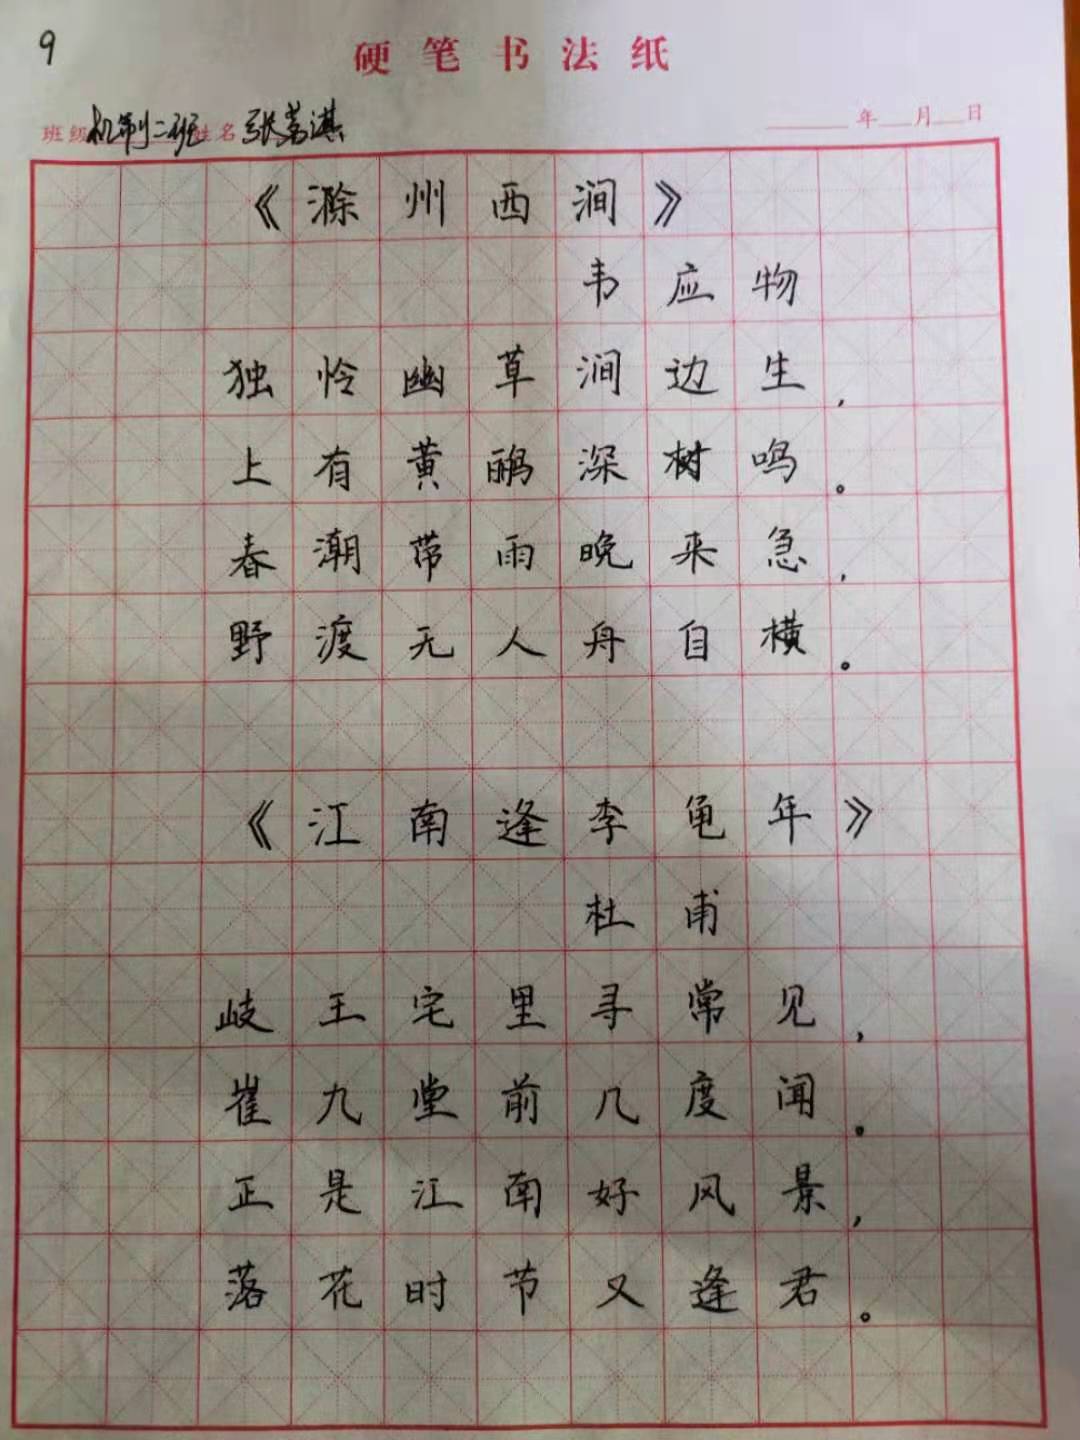 9
硬笔书法纸
班级 机制二班 姓名 张茗淇 年 月 日
《滁州西涧》
韦应物
独怜幽草涧边生，
上有黄鹂深树鸣。
春潮带雨晚来急，
野渡无人舟自横。
《江南逢李龟年》
杜甫
岐王宅里寻常见，
崔九堂前几度闻。
正是江南好风景，
落花时节又逢君。